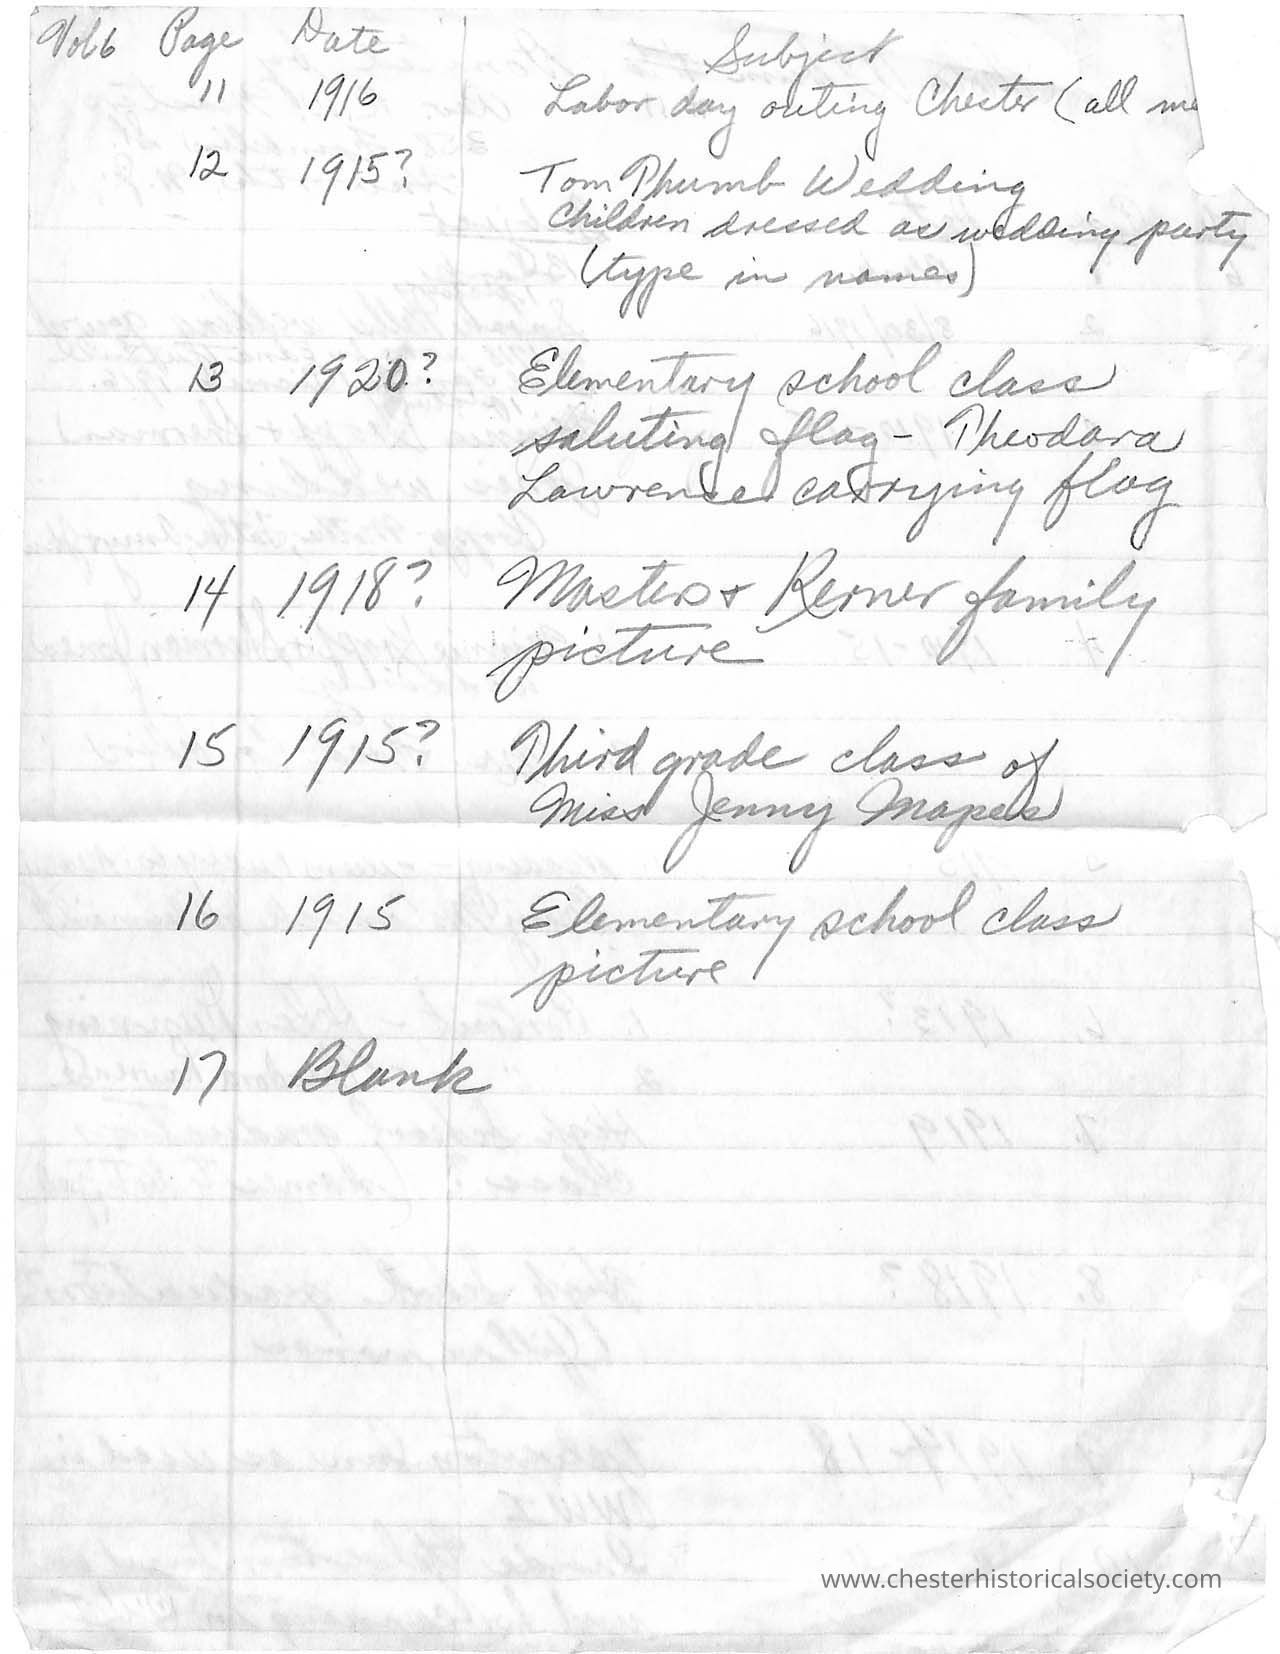 Vol 6 Page Date Subject
11 1916 Labor day outing Chester (all me
12 1915? Tom Thumb Wedding
Children dressed as wedding party
(type in names)
13 1920? Elementary school class
saluting flag - Theodora
Lawrence carrying flag
14 1918? Masters + Kerner family
picture
15 1915? Third grade class of
Miss Jenny Mapes
16 1915 Elementary school class
picture
17 Blank
www.chesterhistoricalsociety.com